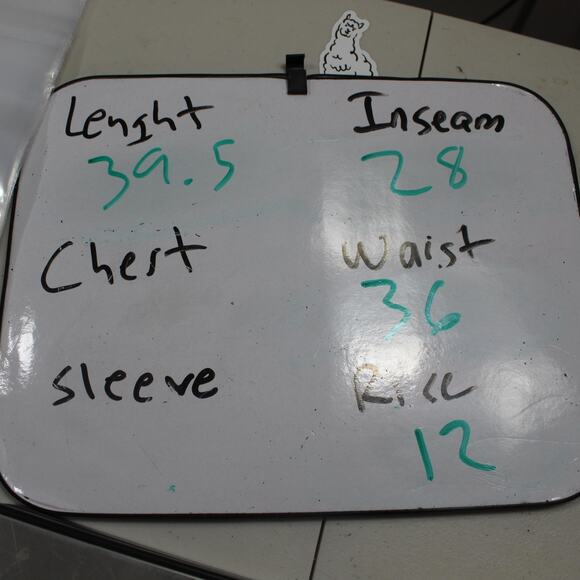 Lenght Inseam
39.5 28
Chest Waist
36
sleeve Rise
12